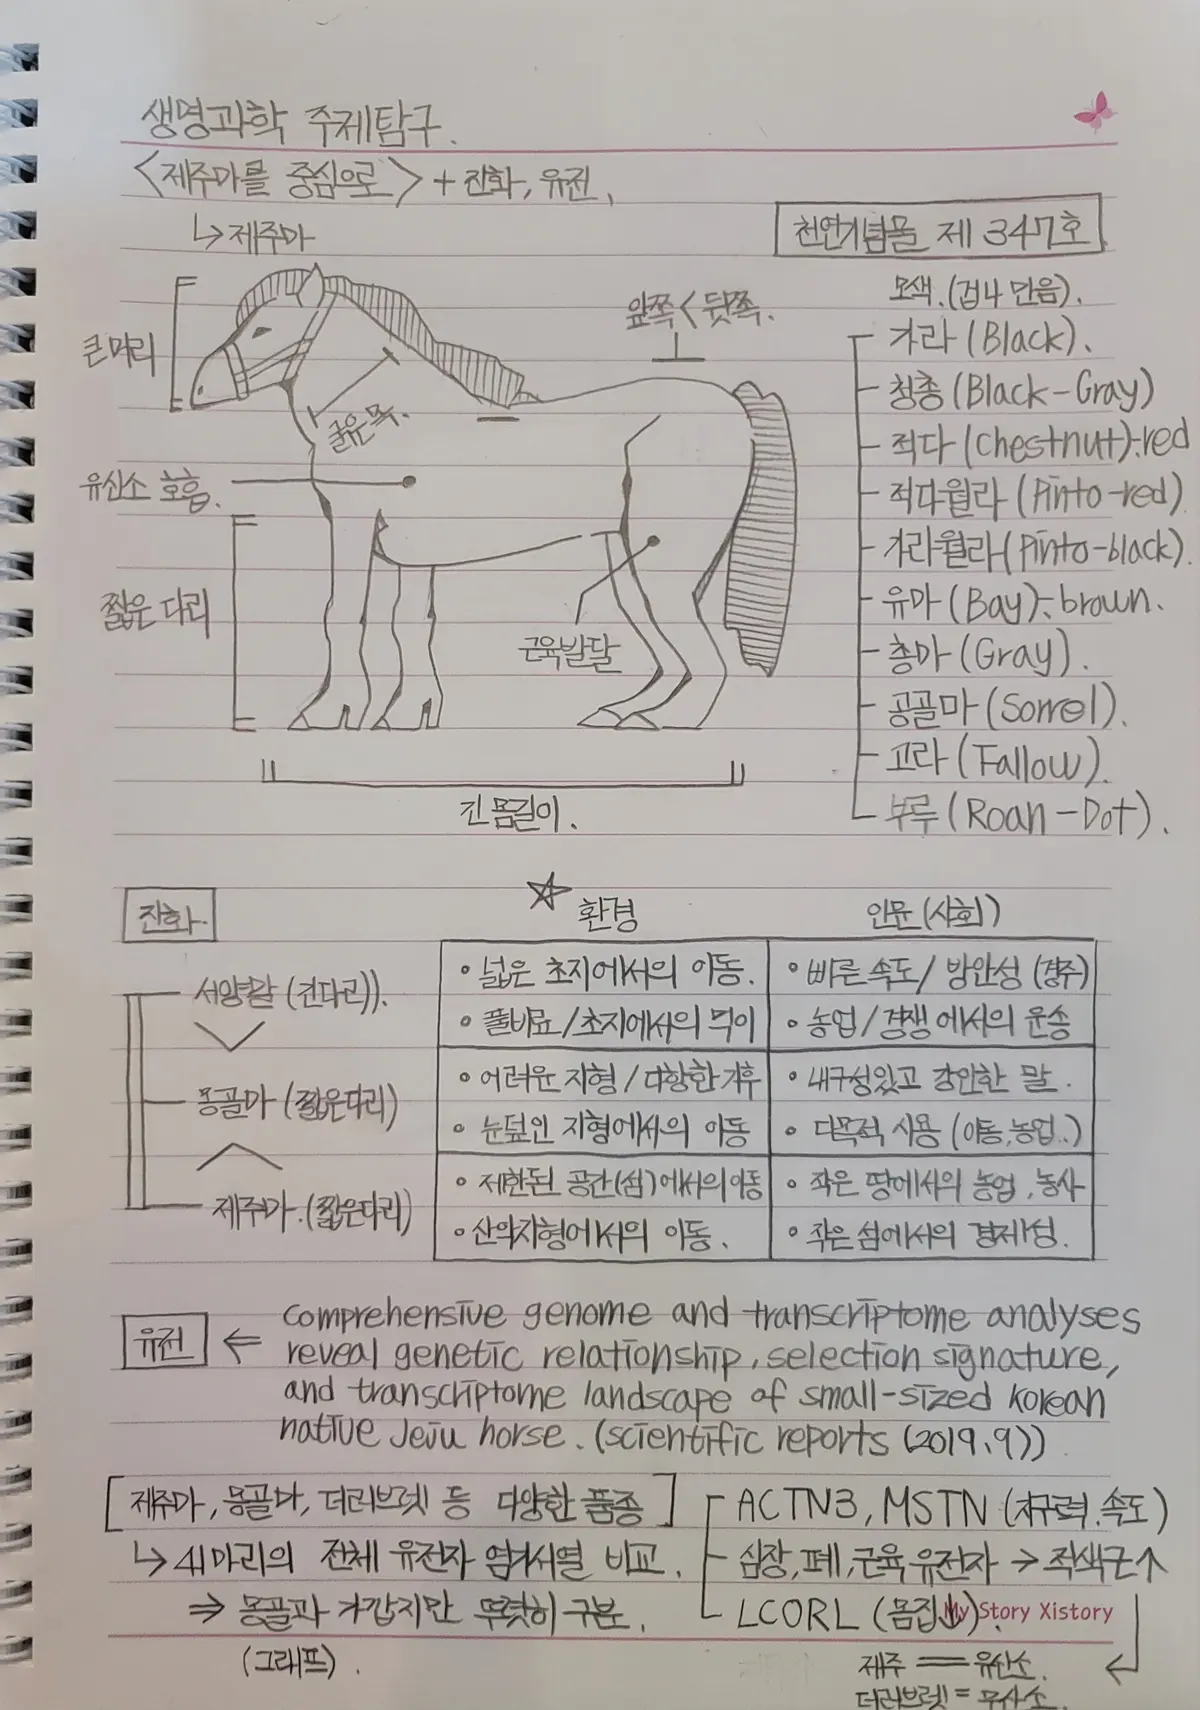 생명과학 주제탐구.
<제주마를 중심으로> + 진화, 유전,
↳ 제주마
천연기념물 제 347호
큰머리
굵은목.
앞쪽 < 뒷쪽.
유산소 호흡.
짧은 다리
근육발달
긴 몸길이.
모색. (겁나 많음).
가라 (Black).
청총 (Black-Gray)
적다 (chestnut).red
적다월라 (Pinto-red)
가라월라 (Pinto-black).
유마 (Bay). brown.
총마 (Gray).
공골마 (Sorrel).
고라 (Fallow).
부루 (Roan-Dot).
진화.
☆ 환경
인문 (사회)
서양말 (긴다리)).
• 넓은 초지에서의 이동.
• 빠른 속도/ 방안성 (경주)
• 풀비료/초지에서의 먹이
• 농업/경쟁에서의 운송
몽골마 (짧은다리)
• 어려운 지형/다양한기후
• 내구성있고 강인한 말.
• 눈덮인 지형에서의 이동
• 다목적 사용 (이동,농업..)
제주마.(짧은다리)
• 제한된 공간(섬)에서의이동
• 작은 땅에서의 농업, 농사
• 산악지형에서의 이동.
• 작은 섬에서의 경제성.
유전 ⇐ comprehensive genome and transcriptome analyses
reveal genetic relationship, selection signature,
and transcriptome landscape of small-sized korean
native Jeju horse. (scientific reports (2019.9))
[제주마, 몽골마, 더러브렛 등 다양한 품종]
↳ 41마리의 전체 유전자 염기서열 비교.
⇒ 몽골과 가깝지만 뚜렷히 구분.
(그래프).
ACTN3, MSTN (지구력.속도)
심장,폐,근육 유전자 → 적색근↑
LCORL (몸집↓).
My Story Xistory
제주 = 유산소.
더러브렛 = 무산소.